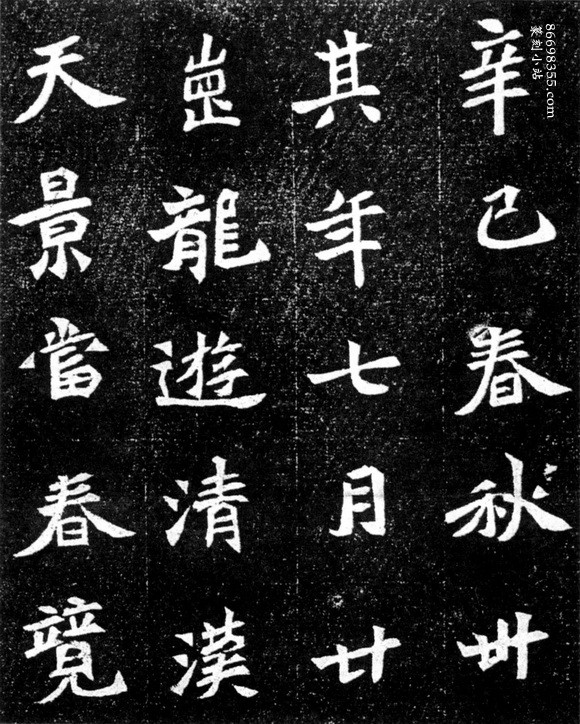 辛巳春秋卌
其年七月廿
龍遊清漢
天景當春竟
86698355.com
篆刻小站